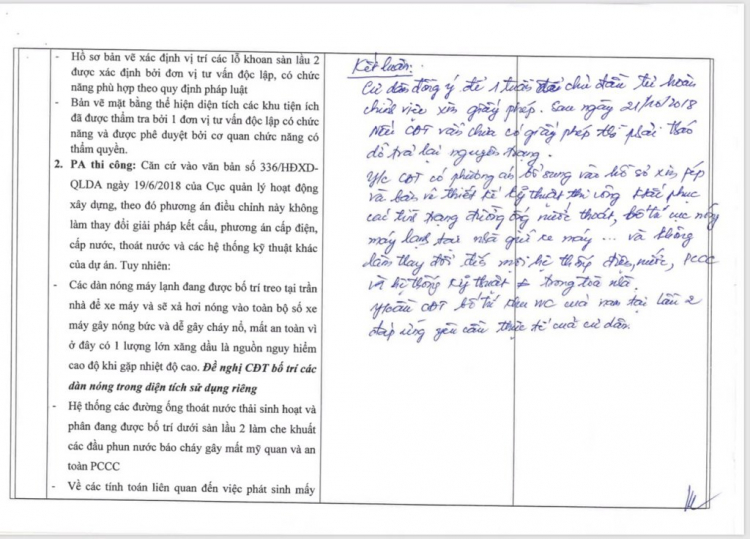 - Hồ sơ bản vẽ xác định vị trí các lỗ khoan sàn lầu 2
được xác định bởi đơn vị tư vấn độc lập, có chức
năng phù hợp theo quy định pháp luật
- Bản vẽ mặt bằng thể hiện diện tích các khu tiện ích
đã được thẩm tra bởi 1 đơn vị tư vấn độc lập có chức
năng và được phê duyệt bởi cơ quan chức năng có
thẩm quyền.
2. PA thi công: Căn cứ vào văn bản số 336/HĐXD-
QLDA ngày 19/6/2018 của Cục quản lý hoạt động
xây dựng, theo đó phương án điều chỉnh này không
làm thay đổi giải pháp kết cấu, phương án cấp điện,
cấp nước, thoát nước và các hệ thống kỹ thuật khác
của dự án. Tuy nhiên:
- Các dàn nóng máy lạnh đang được bố trí treo tại trần
nhà để xe máy và sẽ xả hơi nóng vào toàn bộ số xe
máy gây nóng bức và dễ gây cháy nổ, mất an toàn vì
ở đây có 1 lượng lớn xăng dầu là nguồn nguy hiểm
cao độ khi gặp nhiệt độ cao. Đề nghị CĐT bố trí các
dàn nóng trong diện tích sử dụng riêng
- Hệ thống các đường ống thoát nước thải sinh hoạt và
phân đang được bố trí dưới sàn lầu 2 làm che khuất
các đầu phun nước báo cháy gây mất mỹ quan và an
toàn PCCC
- Về các tính toán liên quan đến việc phát sinh mấy
Kết luận:
Cư dân đồng ý để 1 tuần chủ đầu tư hoàn
chỉnh việc xin giấy phép. Sau ngày 21/10/2018
Nếu CĐT vẫn chưa có giấy phép thì phải tháo
dỡ trả lại nguyên trạng.
Y/c CĐT có phương án bổ sung vào hồ sơ xin phép
và bản vẽ thiết kế kỹ thuật thi công khắc phục
các tình trạng đường ống nước thoát, bố trí cục nóng
máy lạnh tại nhà giữ xe máy ... và không
làm thay đổi đến mọi hệ thống điện, nước, PCCC
và hệ thống kỹ thuật trong tòa nhà.
Y/cầu CĐT bố trí khu WC của nam tại lầu 2
đáp ứng yêu cầu thực tế của cư dân.